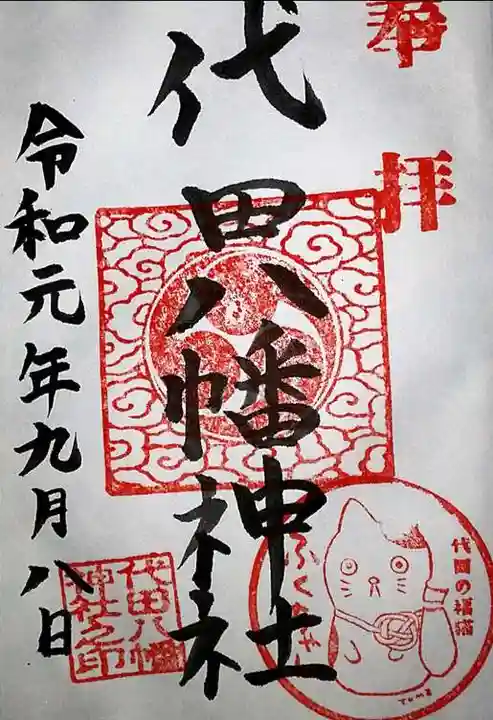 奉拝
代田八幡神社
令和元年九月八日
代田八幡
神社之印
代田の福猫
TOMZ